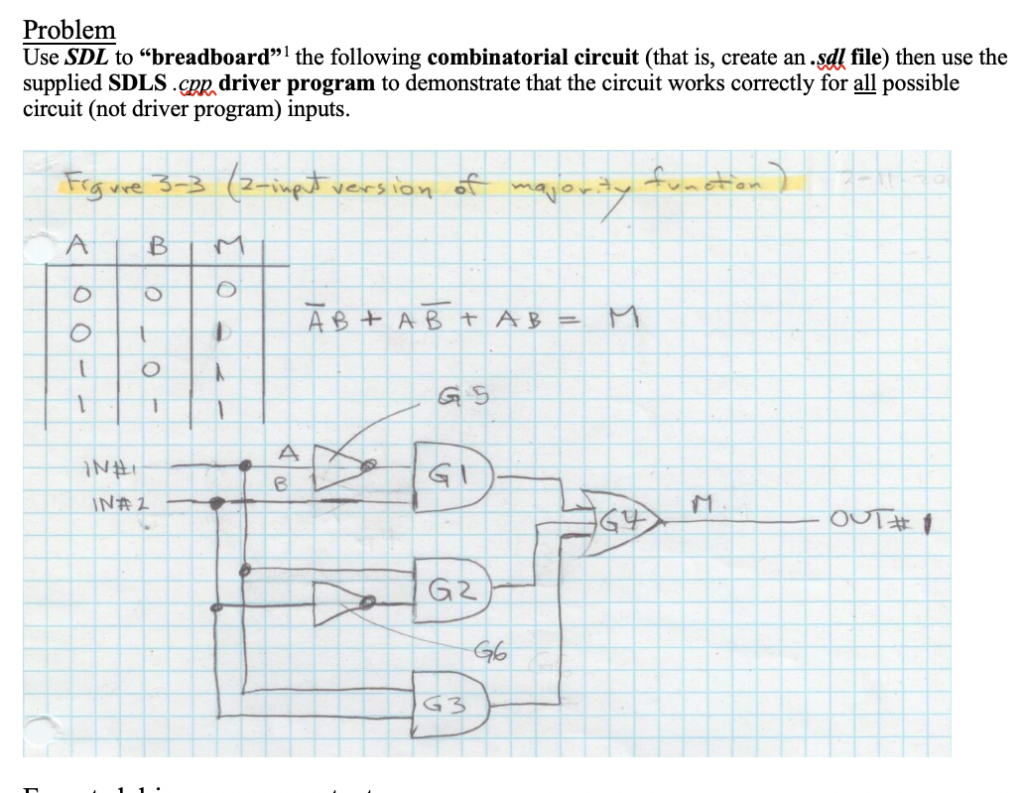 Problem
Use SDL to “breadboard”1 the following combinatorial circuit (that is, create an .sdl file) then use the
supplied SDLS .cpp driver program to demonstrate that the circuit works correctly for all possible
circuit (not driver program) inputs.
Figure 3-3 (2-input version of majority function)
A B M
0 0 0
0 1 1
1 0 1
1 1 1
A̅B + AB̅ + AB = M
G5
IN#1 A
B
IN#2
G1
G4 M OUT#1
G2
G6
G3